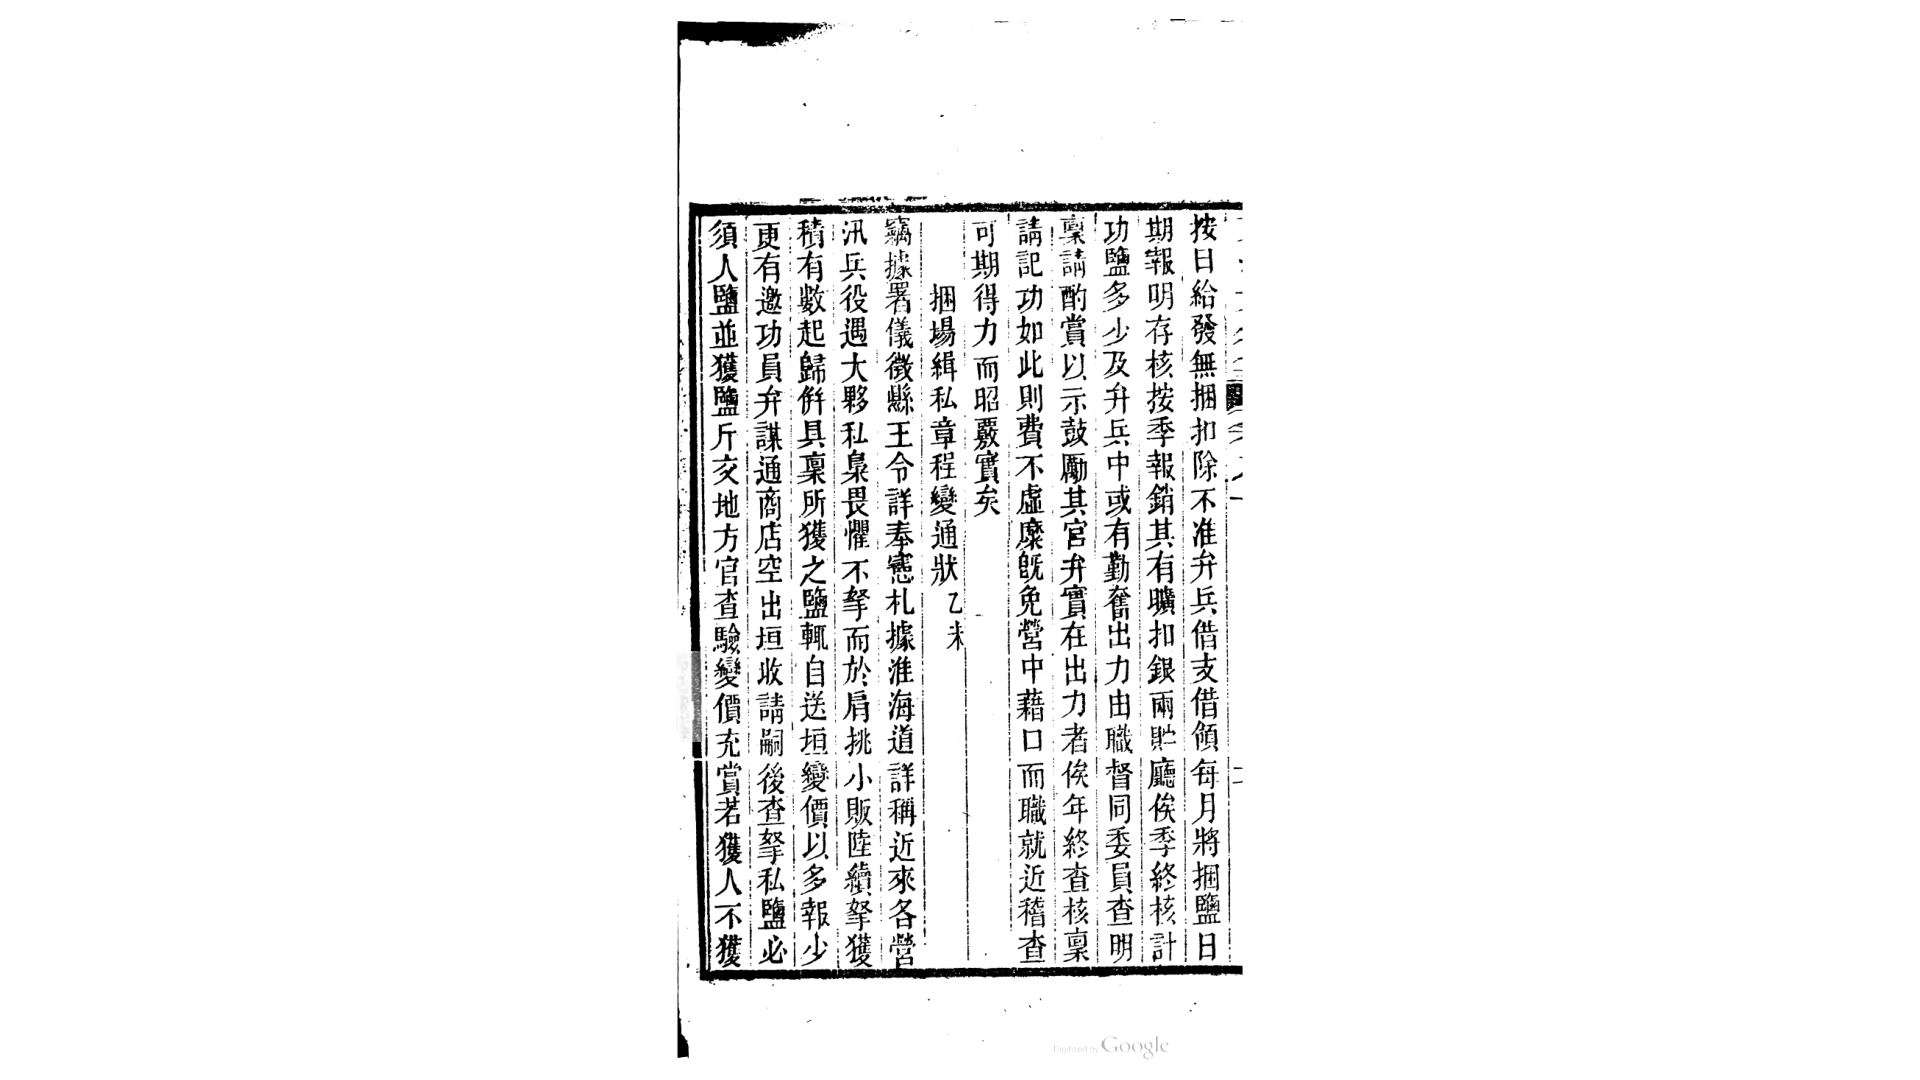 按日給發無捆扣除不准弁兵借支借領每月將捆鹽日
期報明存核按季報銷其有曠扣銀兩貯廳俟季終核計
功鹽多少及弁兵中或有勤奮出力由職督同委員查明
稟請酌賞以示鼓勵其官弁實在出力者俟年終查核稟
請記功如此則費不虛糜旣免營中藉口而職就近稽查
可期得力而昭覈實矣
捆場緝私章程變通狀乙未
竊據署儀徵縣王令詳奉憲札據淮海道詳稱近來各營
汛兵役遇大夥私梟畏懼不拏而於肩挑小販陸續拏獲
積有數起歸倂具稟所獲之鹽輒自送垣變價以多報少
更有邀功員弁謀通商店空出垣收請嗣後查拏私鹽必
須人鹽並獲鹽斤交地方官查驗變價充賞若獲人不獲
Digitized by Google